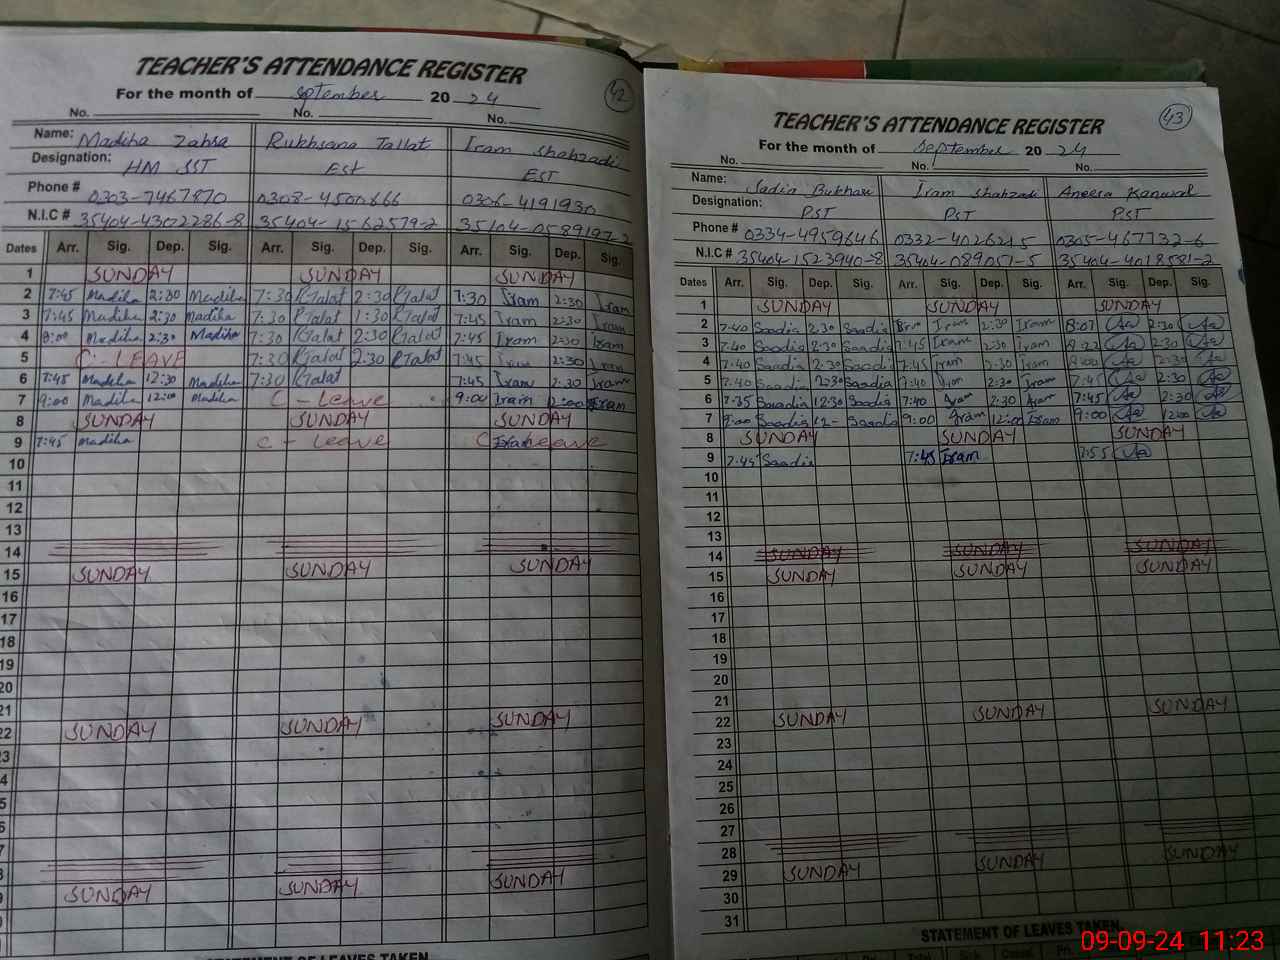 TEACHER'S ATTENDANCE REGISTER
For the month of September 20 24
42
No. No. No.
Name: Madiha Zahra Rukhsana Tallat Iram Shahzadi
Designation: HM SST EST EST
Phone # 0303-7467870 0308-4500666 0306-4191930
N.I.C # 35404-4302286-8 35404-1562579-2 35104-0589197-2
Dates Arr. Sig. Dep. Sig. Arr. Sig. Dep. Sig. Arr. Sig. Dep. Sig.
1 SUNDAY SUNDAY SUNDAY
2 7:45 Madiha 2:30 Madiha 7:30 RTalat 2:30 RTalat 7:30 Iram 2:30 Iram
3 7:45 Madiha 2:30 Madiha 7:30 RTalat 1:30 RTalat 7:45 Iram 2:30 Iram
4 8:00 Madiha 2:30 Madiha 7:30 RTalat 2:30 RTalat 7:45 Iram 2:30 Iram
5 C-LEAVE 7:30 RTalat 2:30 RTalat 7:45 Iram 2:30 Iram
6 7:45 Madiha 12:30 Madiha 7:30 RTalat 7:45 Iram 2:30 Iram
7 9:00 Madiha 12:00 Madiha C-Leave 9:00 Iram 12:00 Iram
8 SUNDAY SUNDAY SUNDAY
9 7:45 Madiha C-Leave C Leave
10
11
12
13
14
15 SUNDAY SUNDAY SUNDAY
16
17
18
19
20
21
22 SUNDAY SUNDAY SUNDAY
3
4
5
SUNDAY SUNDAY SUNDAY
STATEMENT OF LEAVES TAKEN
TEACHER'S ATTENDANCE REGISTER
For the month of September 20 24
43
No. No. No.
Name: Sadia Bukhari Iram Shahzadi Aneesa Kanwal
Designation: PST PST PST
Phone # 0334-4959646 0332-4026215 0305-467732-6
N.I.C # 35404-1523940-8 35404-089051-5 35404-4018581-2
Dates Arr. Sig. Dep. Sig. Arr. Sig. Dep. Sig. Arr. Sig. Dep. Sig.
1 SUNDAY SUNDAY SUNDAY
2 7:40 Saadia 2:30 Saadia Iram 2:30 Iram 8:07 2:30
3 7:40 Saadia 2:30 Saadia 7:45 Iram 2:30 Iram 2:30
4 7:40 Saadia 2:30 Saadia 7:45 Iram 2:30 Iram 8:00 2:30
5 7:40 Saadia 2:30 Saadia 7:40 Iram 2:30 Iram 7:45 2:30
6 7:35 Saadia 12:30 Saadia 7:40 Iram 2:30 Iram 7:45 2:30
7 9:00 Saadia 12- Saadia 9:00 Iram 12:00 Iram 9:00 12:00
8 SUNDAY SUNDAY SUNDAY
9 7:45 Saadia 7:45 Iram 7:55
10
11
12
13
14 SUNDAY SUNDAY SUNDAY
15 SUNDAY SUNDAY SUNDAY
16
17
18
19
20
21
22 SUNDAY SUNDAY SUNDAY
23
24
25
26
27
28
29 SUNDAY SUNDAY SUNDAY
30
31
STATEMENT OF LEAVES TAKEN
09-09-24 11:23